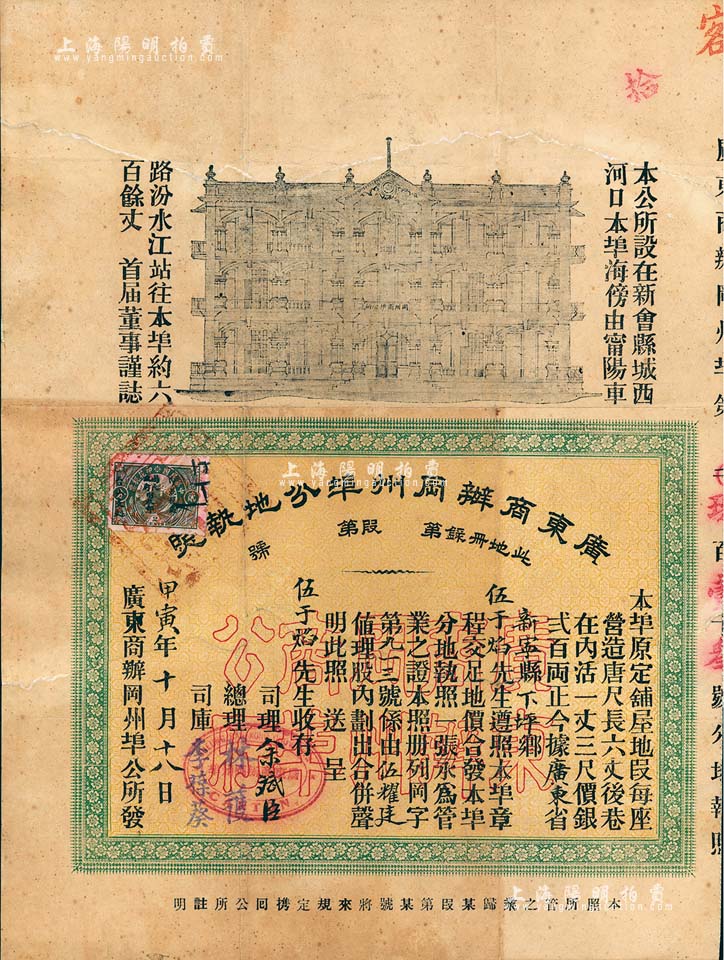 上海陽明拍賣
www.yangmingauction.com
拾
本公所設在新會縣城西
河口本埠海傍由甯陽車
路汾水江站往本埠約六
百餘丈 首届董事謹誌
廣東商辦岡州埠分地執照
此地冊錄第 段第 號
本埠原定舖屋地段每座
營造唐尺長六丈後巷
在內活一丈三尺價銀
弍百両正今據廣東省
新寧縣下坪鄉
伍于焰先生遵照本埠章
程交足地價合發本埠
分地執照 張永為管
業之證本照册列岡字
第九三號係由伍耀廷
值理股內劃出合併聲
明此照 送呈
伍于焰先生收存
司理余斌臣
總理林護
司庫李葆葵
甲寅年十月十八日
廣東商辦岡州埠公所發
上海陽明拍賣
www.yangmingauction.com
本照所管之業歸某段第某號將來規定携回公所註明
上海陽明拍賣
www.yangmingauction.com